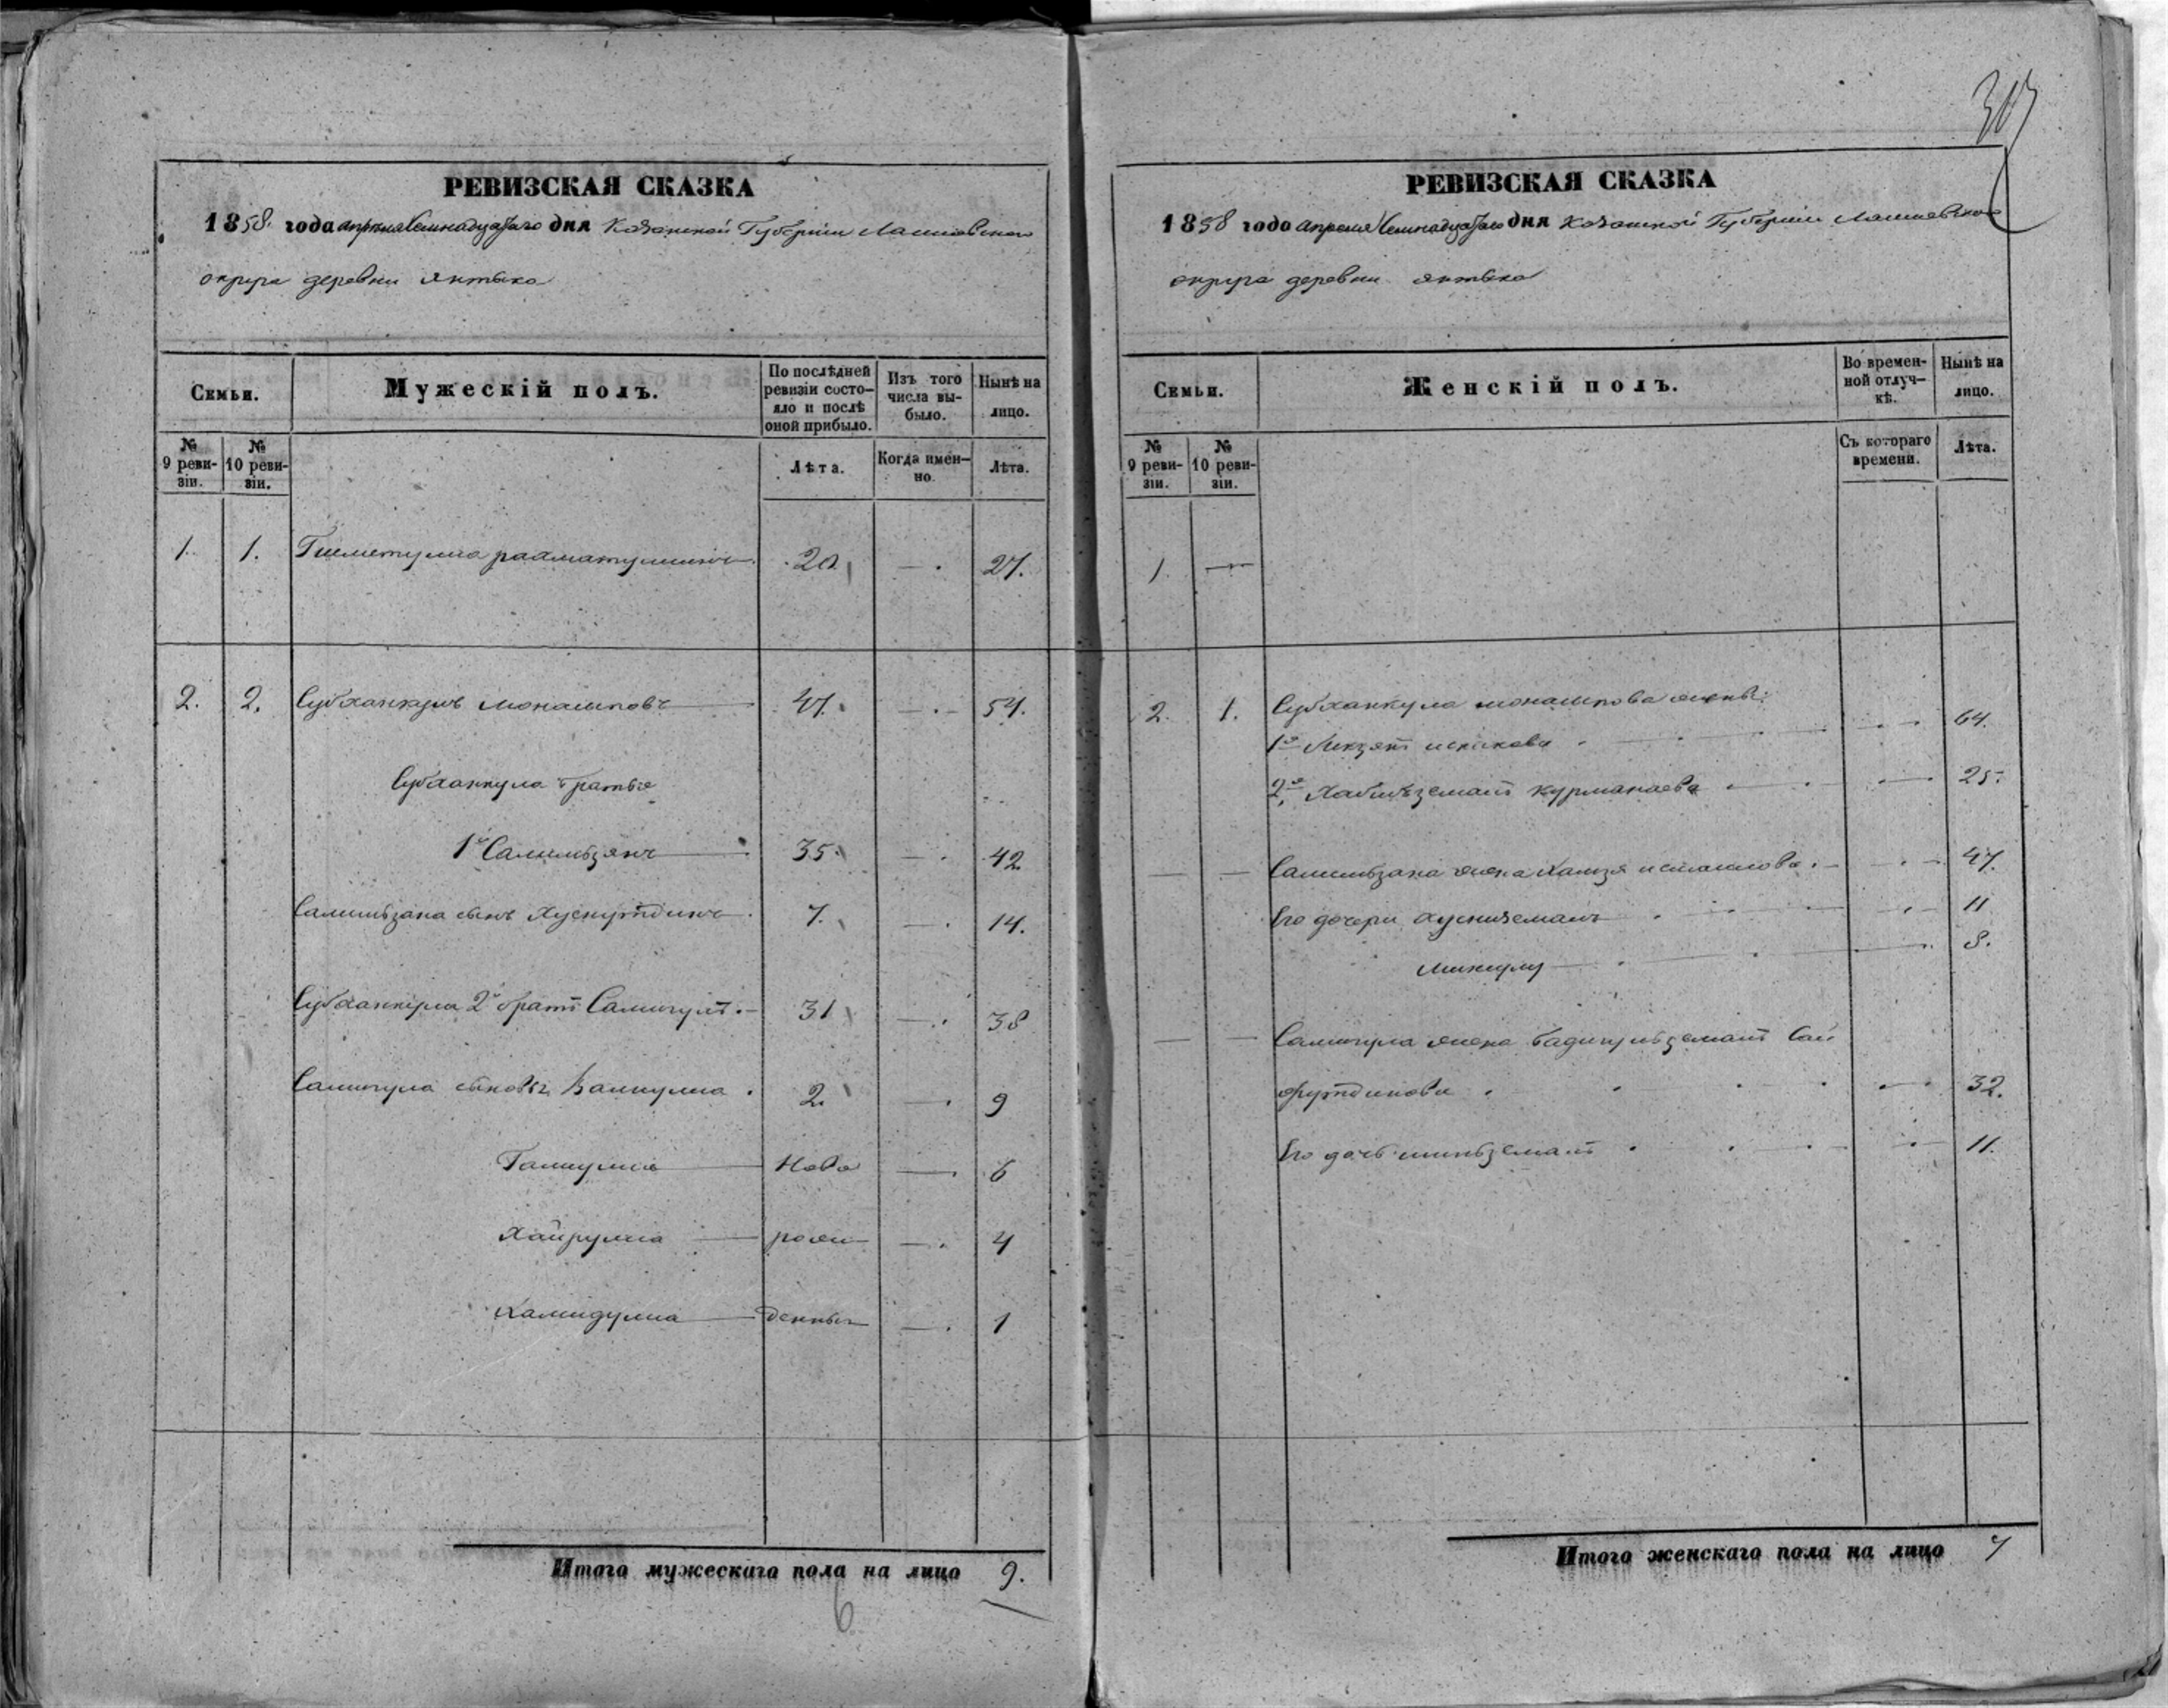 РЕВИЗСКАЯ СКАЗКА
1858 года апреля семнадцатаго дня Казанской Губернии Лаишевскаго
округа деревни янтыка
Семьи.
Мужескій полъ.
По послѣдней ревизіи состояло и послѣ оной прибыло.
Изъ того числа выбыло.
Нынѣ на лицо.
№ 9 ревизіи.
№ 10 ревизіи.
Лѣта.
Когда именно.
Лѣта.
1. 1. 20 — 27.
2. 2. Субханкулъ 47. — 54.
Субханкула братья
1й Салимьзянъ 35. — 42
Салимьзяна сынъ Хуснутдинъ 7. — 14.
Субханкула 2й братъ Самигулъ 31 — 38
Самигула сыновья Валиулла 2. — 9
Галиулла Ново — 6
Хайрулла рож — 4
Хамидулла денныя — 1
Итого мужескаго пола на лицо 9.
6
РЕВИЗСКАЯ СКАЗКА
1858 года апреля семнадцатаго дня Казанской Губернии Лаишевскаго
округа деревни янтыка
Семьи.
Женскій полъ.
Во временной отлучкѣ.
Нынѣ на лицо.
№ 9 ревизіи.
№ 10 ревизіи.
Съ котораго времени.
Лѣта.
1. —
2. 1. Субханкула жены:
1я — 64.
2я курманаева — 25.
— — Салимьзяна жена исмаилова — 47.
Его дочери хуснизямалъ — 11
— 8.
— — Самигула жена бадигульземалъ Сай
футдинова — 32.
Его дочь — 11.
Итого женскаго пола на лицо 7